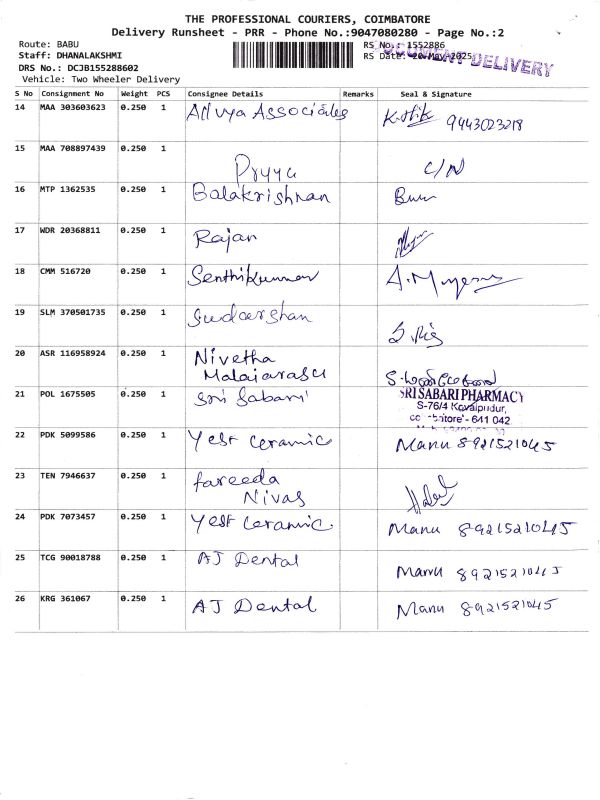 THE PROFESSIONAL COURIERS, COIMBATORE
Delivery Runsheet - PRR - Phone No.:9047080280 - Page No.:2
Route: BABU
Staff: DHANALAKSHMI
DRS No.: DCJB155288602
Vehicle: Two Wheeler Delivery
RS No.: 1552886
RS Date: 20-May-2025
DOCUMENT DELIVERY
S No Consignment No Weight PCS Consignee Details Remarks Seal & Signature
14 MAA 303603623 0.250 1 Associates 9443023218
15 MAA 708897439 0.250 1 Priya C/N
16 MTP 1362535 0.250 1 Balakrishnan
17 WDR 20368811 0.250 1 Rajan
18 CMM 516720 0.250 1 Senthilkumar
19 SLM 370501735 0.250 1 Sudarshan
20 ASR 116958924 0.250 1 Nivetha
Malaiarasu
21 POL 1675505 0.250 1 Sri Sabari SRI SABARI PHARMACY
S-76/4 Kovaipudur,
641 042
22 PDK 5099586 0.250 1 Yest ceramic Manu 8921521045
23 TEN 7946637 0.250 1 fareeda
Nivas
24 PDK 7073457 0.250 1 Yest ceramic. Manu 8921521045
25 TCG 90018788 0.250 1 AJ Dental Manu 8921521045
26 KRG 361067 0.250 1 AJ Dental Manu 8921521045